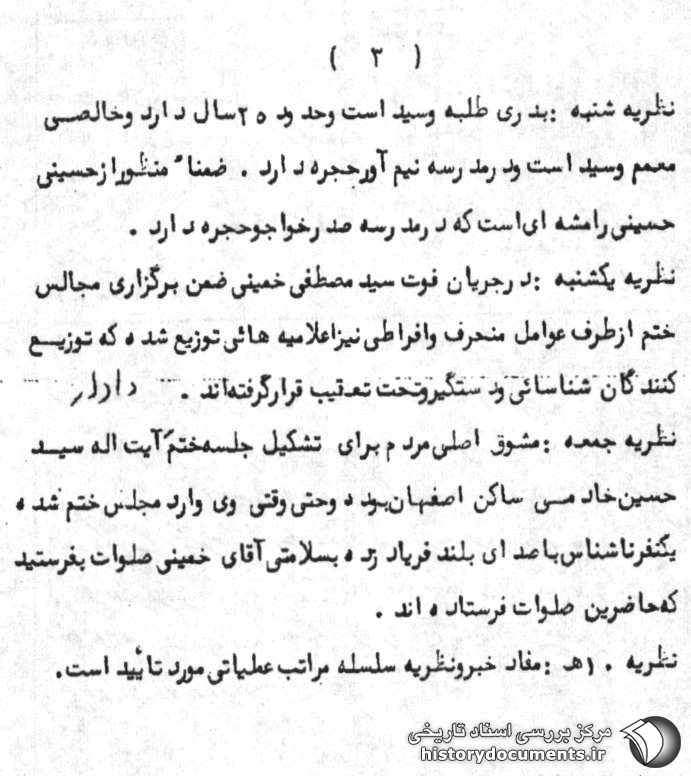 ( ۳ )
نظریه شنبه : بدری طلبه وسید است وحدود ۲۵ سال دارد وخالصی
معمم وسید است ودرمدرسه نیم آورحجره دارد . ضمنا" منظورازحسینی
حسینی رامشه ای است که درمدرسه صدرخواجوحجره دارد .
نظریه یکشنبه : درجریان فوت سید مصطفی خمینی ضمن برگزاری مجالس
ختم ازطرف عوامل منحرف وافراطی نیزاعلامیه هائی توزیع شده که توزیع
کنندگان شناسائی ودستگیروتحت تعقیب قرارگرفته‌اند .
نظریه جمعه : مشوق اصلی مردم برای تشکیل جلسه ختم آیت اله سید
حسین خادمی ساکن اصفهان بوده وحتی وقتی وی وارد مجلس ختم شده
یکنفرناشناس باصدای بلند فریاد زده بسلامتی آقای خمینی صلوات بفرستید
که حاضرین صلوات فرستاده اند .
نظریه ۱۰ هـ : مفاد خبرونظریه سلسله مراتب عملیاتی مورد تأیید است .
مرکز بررسی اسناد تاریخی
historydocuments.ir